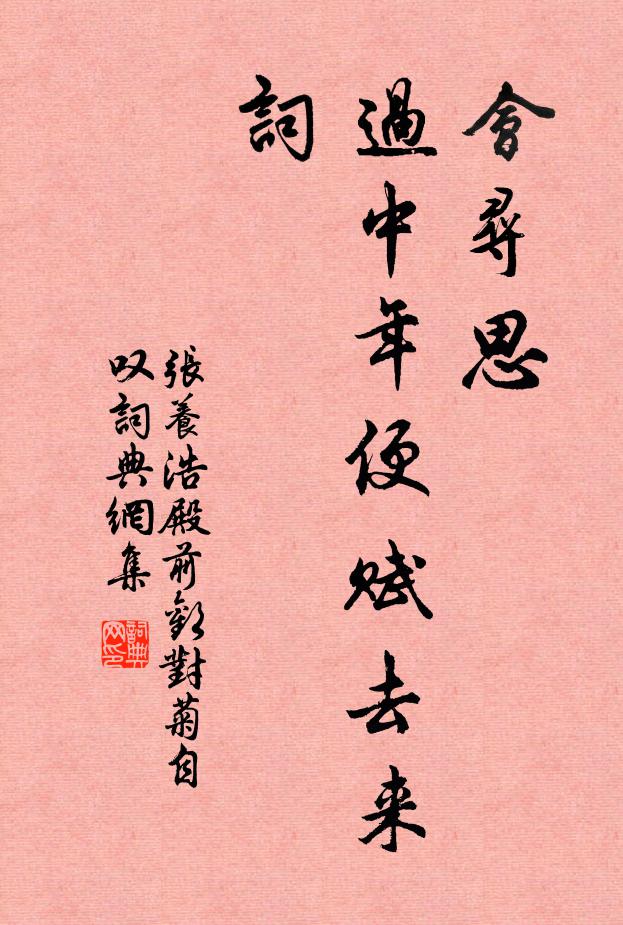 會尋思
過中年便賦去来
詞
張養浩殿前歡對菊自
叹詞典網集
詞典网印